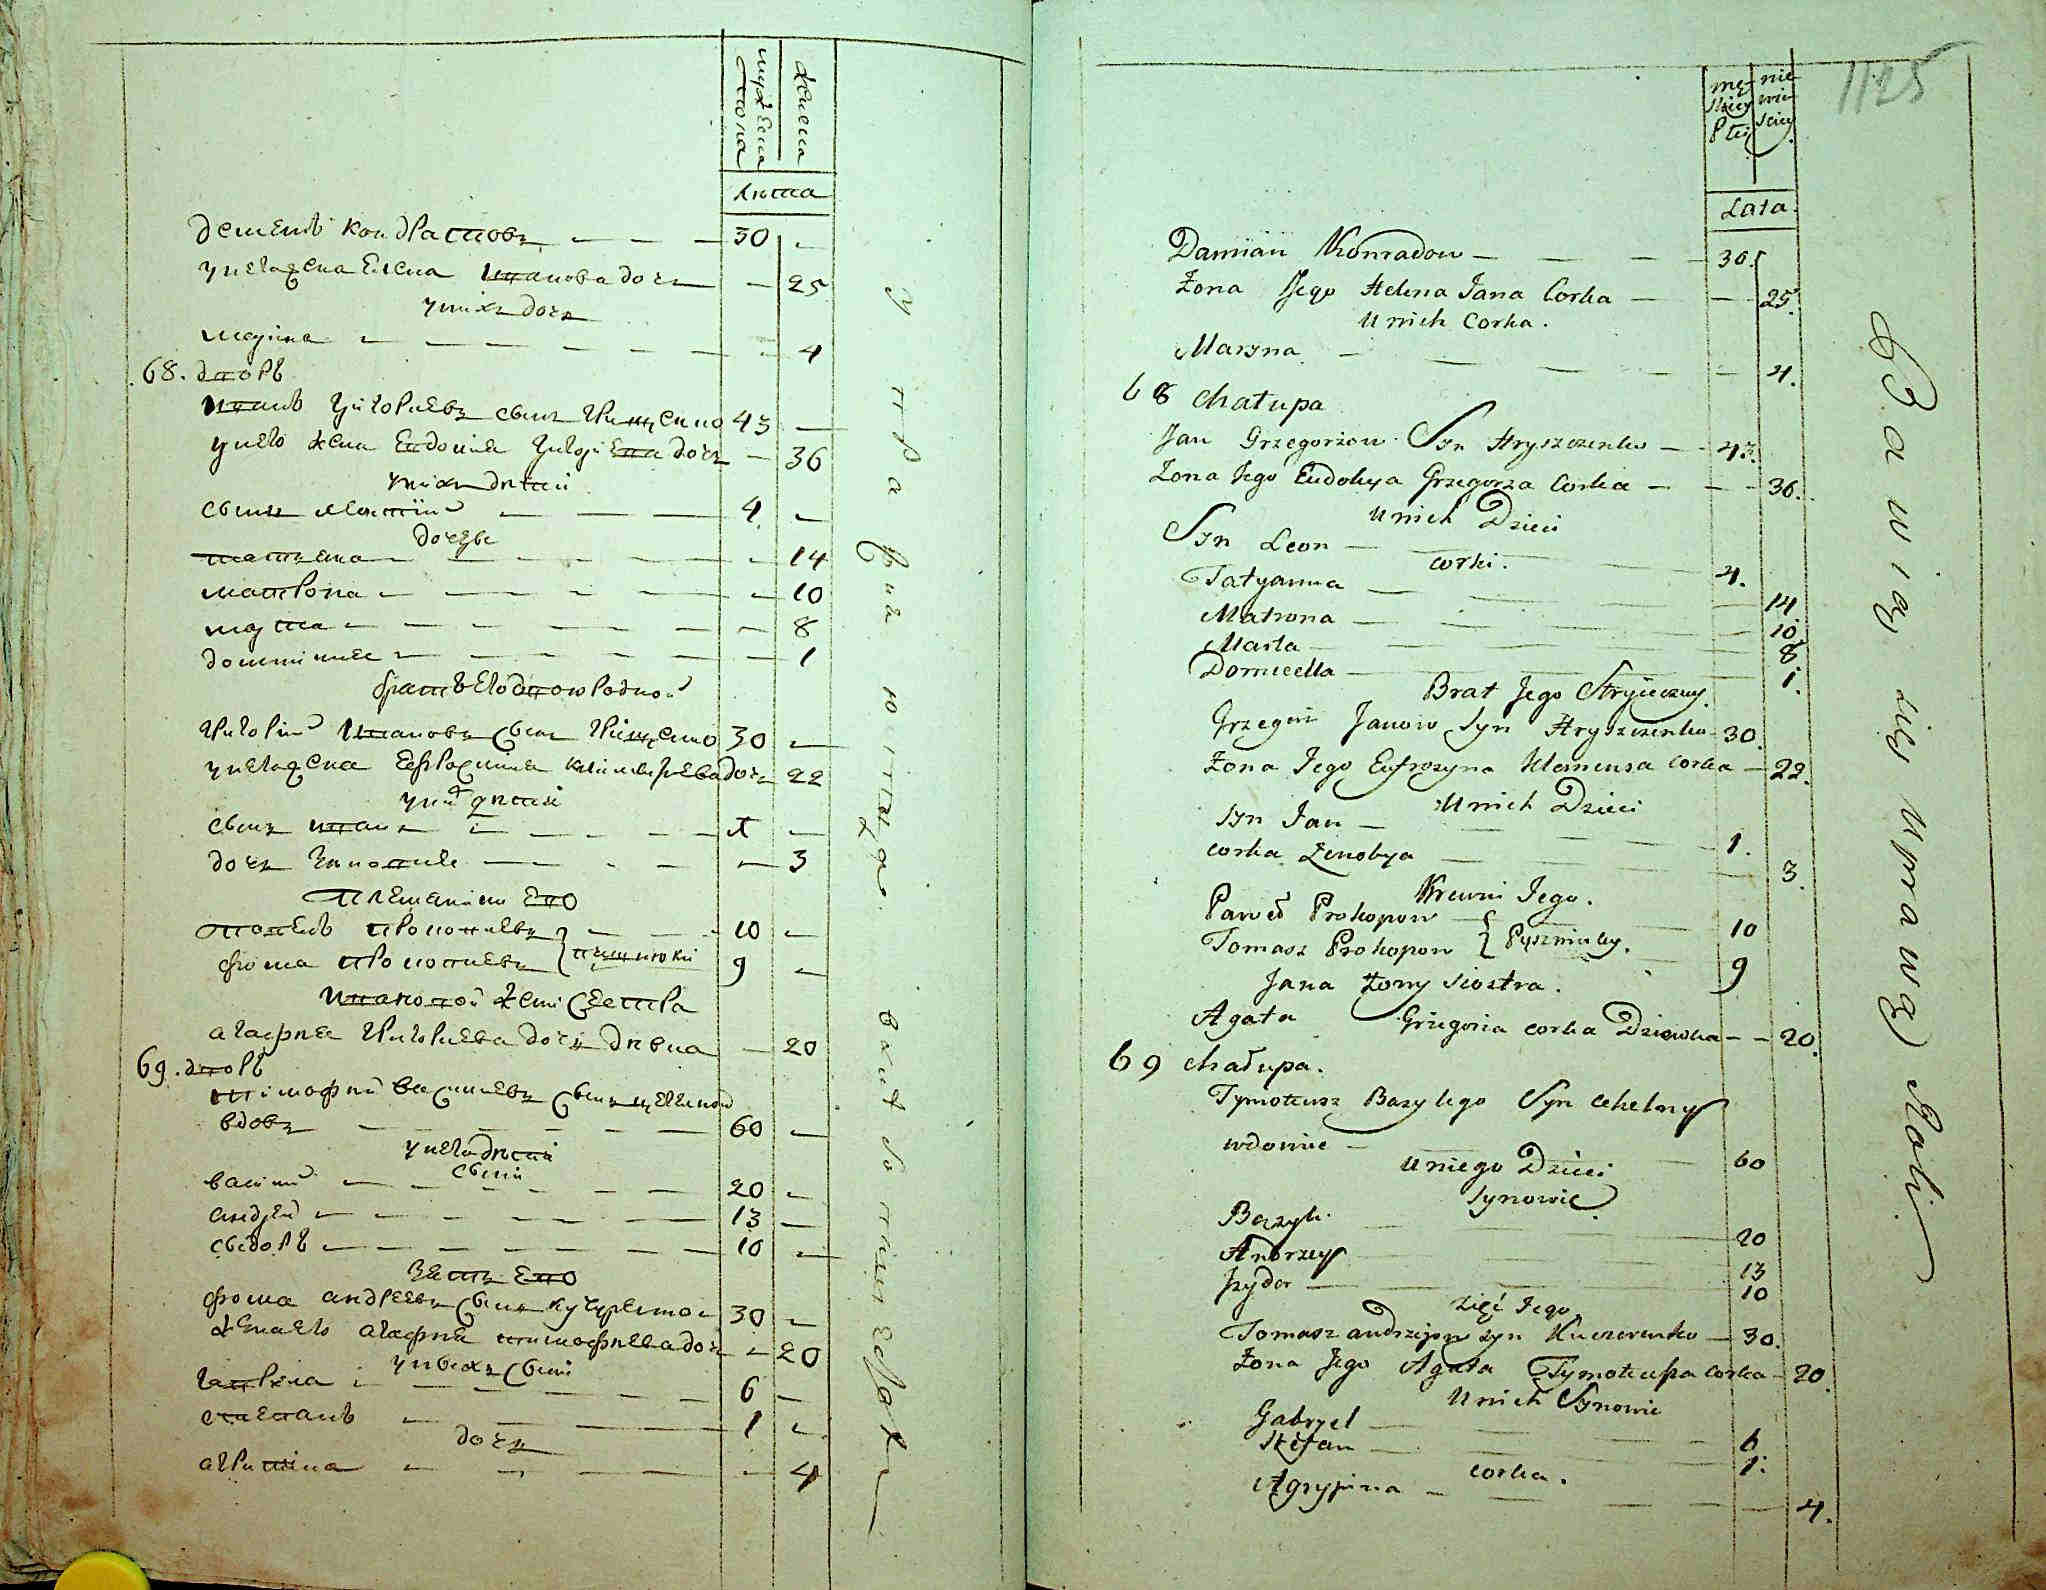 мужеска пола
женска
лета
дементь кондратовъ — — — 30 —
унегожена елена иванова дочъ — — 25
унихъ дочъ
марина — — — — — — — 4
68. дворъ
иванъ григориевъ сынъ грищенко 43 —
унего жена евдокия григориева дочъ — 36
унихъ дети
сынъ — — — 4 —
дочери
татиана — — — — — 14
матрона — — — — — — 10
марта — — — — — — — 8
домникия — — — — — — 1
братъ его двоюродной
григорий ивановъ сынъ грищенко 30 —
унегожена ефросиния дочъ 22
унихъ дети
сынъ иванъ — — — — 1 —
дочъ зиновия — — — — 3
племяники его
прокопиевъ — — 10 —
фома прокопиевъ 9 —
ивановой жени сестра
агафия григориева дочъ девка — 20
69. дворъ
тимофей василиевъ сынъ
вдовъ — — — — — 60 —
унего дети
сыни
василий — — — — — 20 —
андрей — — — — — — 13 —
сидоръ — — — — — — 10 —
зять его
фома андреевъ сынъ 30 —
жена его агафия тимофиева дочъ — 20
унихъ сыни
гаврила — — — — — 6 —
степанъ — — — 1 —
дочъ
агрипина — — — — 4
управляются
1125
męskiey płci
niewiesciey
Lata.
Damian Konradow — — — — 30.
Żona Jego Helena Jana Corka — — 25.
U nich Corka.
Maryna — — — — — 4.
68 chałupa
Jan Grzegorzow Syn Hryszczenko — 43.
Żona Jego Eudokya Grzegorza Corka — — 36.
U nich Dzieci
Syn Leon — — — 4.
corki.
Tatyanna — — — — 14
Matrona — — — — 10
Marta — — — — 8
Domicella — — — — 1.
Brat Jego Stryieczny.
Grzegorz Janow Syn Hryszczenko 30.
Żona Jego Eufrozyna Klemensa Corka — 22.
U nich Dzieci
Syn Jan — — — 1.
corka Zenobya — — — 3.
Krewni Jego.
Paweł Prokopow — — 10
Tomasz Prokopow } Pyszniuky. — 9
Jana Żony Siostra.
Agata Grzegorza corka Dziewka — — 20.
69 chałupa.
Tymoteusz Bazylego Syn
wdowiec — — 60
U niego Dzieci
Synowie
Bazyli. — — — 20
Andrzey — — — 13
Jzydor — — — 10
zięć Jego
Tomasz andrzejow syn Kuczerenko — 30.
Żona Jego Agata Tymoteusza corka — 20.
U nich Synowie
Gabryel — — — 6
Stefan — — — 1.
corka.
Agrypina — — — — 4.
Bawią się Uprawą Roli